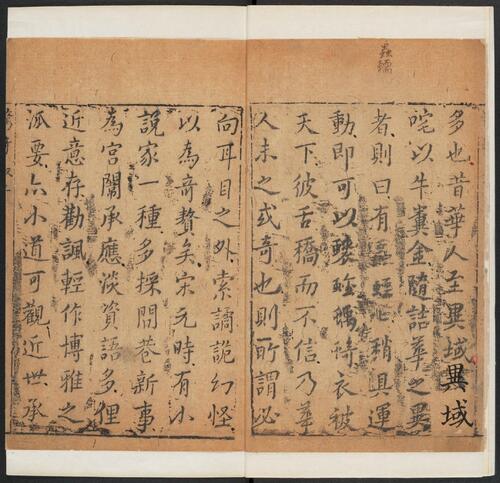 蟲蠕
多也昔華人至異域異域
咤以牛糞金隨詰華之異
者則曰有稍具運
動即可以衣被
天下彼舌橋而不信乃華
人未之或奇也則所謂必
向耳目之外索譎詭幻怪
以為奇贅矣宋元時有小
說家一種多採閭巷新事
為宮闈承應淡資語多俚
近意存勸諷輕作博雅之
派要亦小道可觀近世承